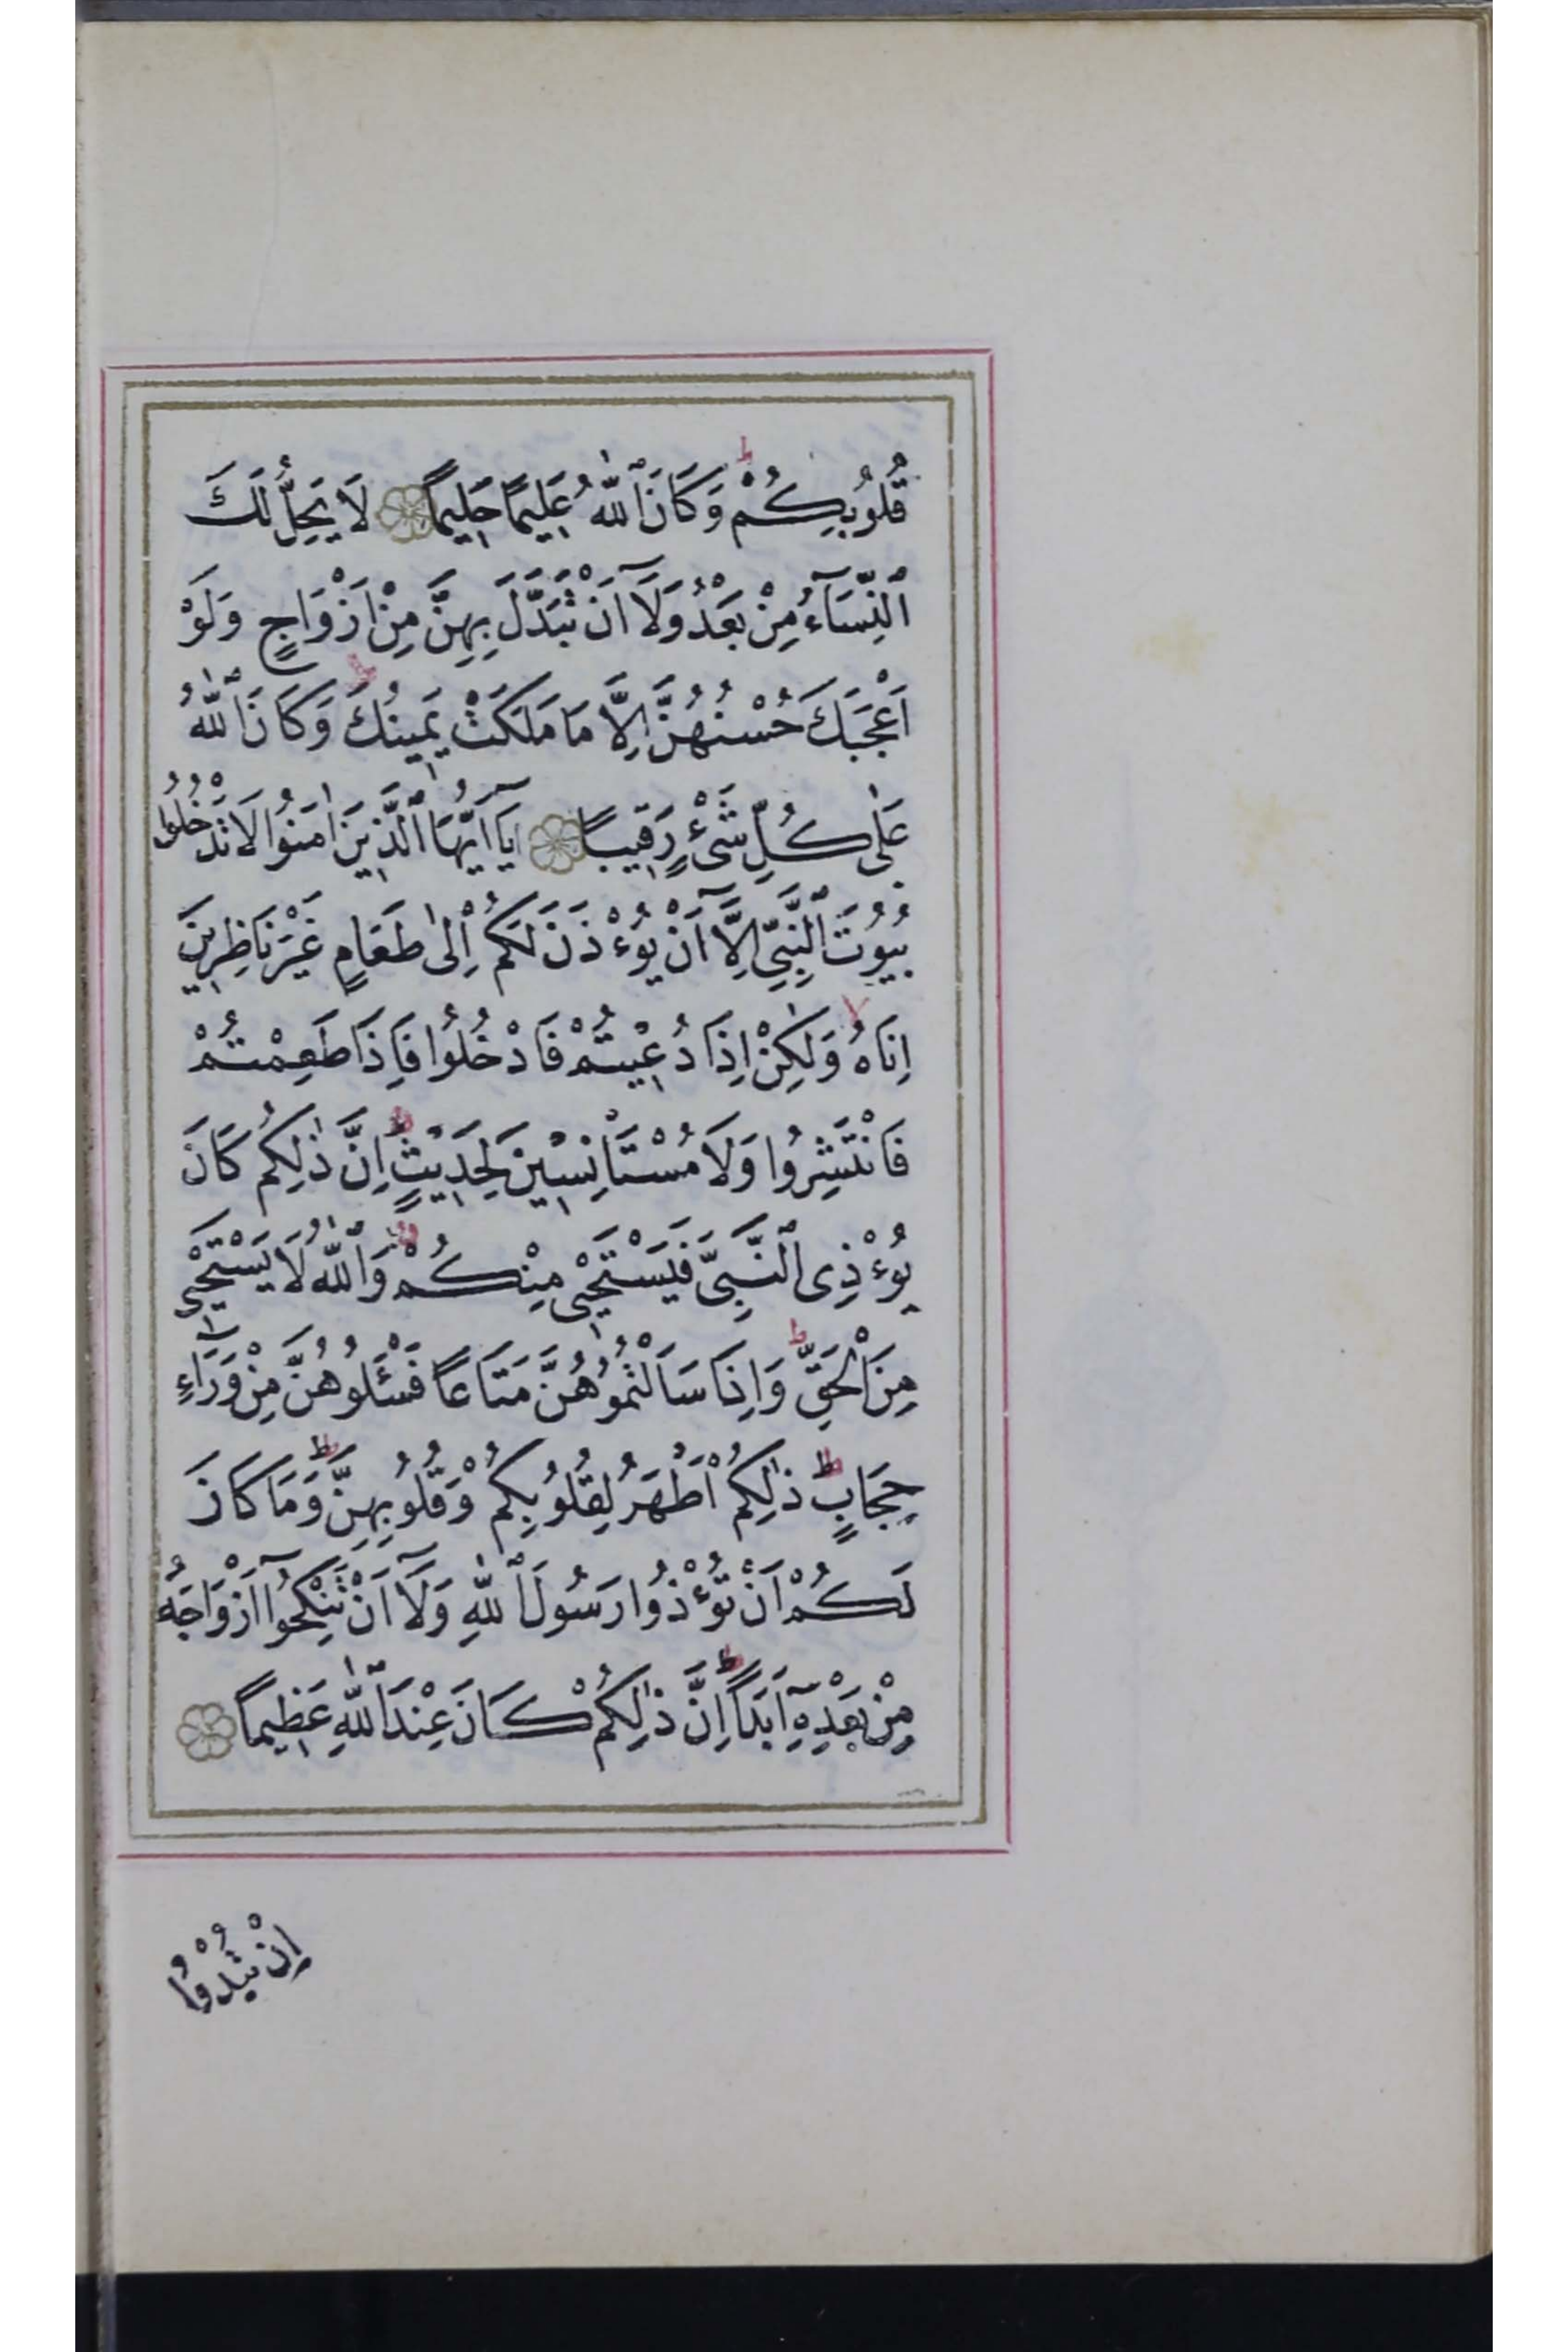 قُلُوبِكُمْ ۭ وَكَانَ ٱللّٰهُ عَلِيمًا حَلِيمًا لَا يَحِلُّ لَكَ
ٱلنِّسَآءُ مِنْ بَعْدُ وَلَآ اَنْ تَبَدَّلَ بِهِنَّ مِنْ اَزْوَاجٍ وَلَوْ
اَعْجَبَكَ حُسْنُهُنَّ اِلَّا مَا مَلَكَتْ يَمِينُكَ ط وَكَانَ ٱللّٰهُ
عَلٰى كُلِّ شَىْءٍ رَقِيبًا يَآ اَيُّهَا ٱلَّذِينَ اٰمَنُوا لَا تَدْخُلُوا
بُيُوتَ ٱلنَّبِىِّ اِلَّآ اَنْ يُؤْذَنَ لَكُمْ اِلٰى طَعَامٍ غَيْرَ نَاظِرِينَ
اِنَاهُ لا وَلٰكِنْ اِذَا دُعِيتُمْ فَادْخُلُوا فَاِذَا طَعِمْتُمْ
فَانْتَشِرُوا وَلَا مُسْتَاْنِسِينَ لِحَدِيثٍ ط اِنَّ ذٰلِكُمْ كَانَ
يُؤْذِى ٱلنَّبِىَّ فَيَسْتَحْيٖى مِنْكُمْ ز وَٱللّٰهُ لَا يَسْتَحْيٖى
مِنَ الْحَقِّ ط وَاِذَا سَاَلْتُمُوهُنَّ مَتَاعًا فَسْـَٔلُوهُنَّ مِنْ وَرَآءِ
حِجَابٍ ط ذٰلِكُمْ اَطْهَرُ لِقُلُوبِكُمْ وَقُلُوبِهِنَّ ط وَمَا كَانَ
لَكُمْ اَنْ تُؤْذُوا رَسُولَ ٱللّٰهِ وَلَآ اَنْ تَنْكِحُوٓا اَزْوَاجَهُ
مِنْ بَعْدِهِٓ اَبَدًا ط اِنَّ ذٰلِكُمْ كَانَ عِنْدَ ٱللّٰهِ عَظِيمًا
اِنْ تُبْدُوا